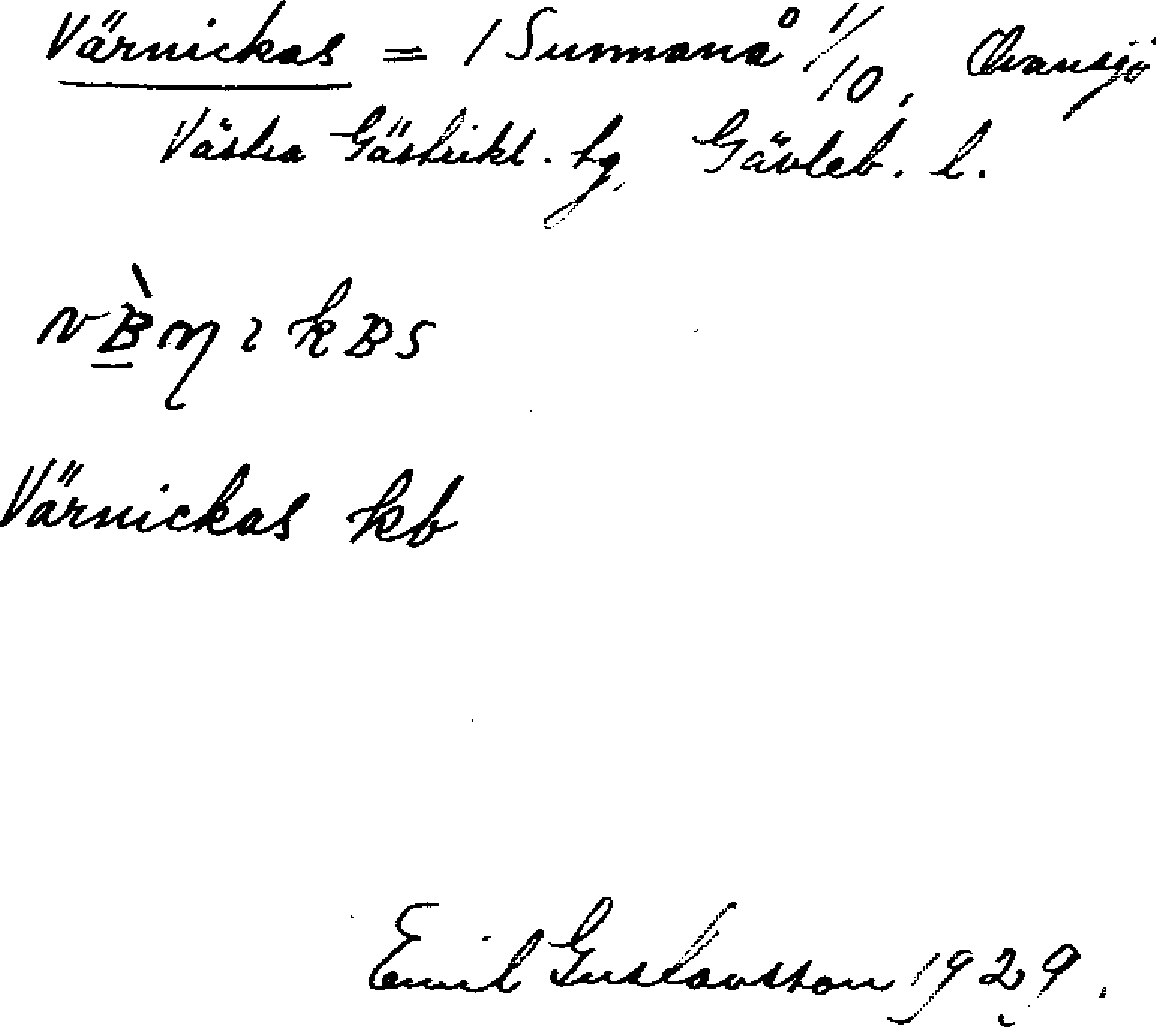 Värnickas = / Sunnanå 1/10, Ovansjö
Västra Gästrikl. tg, Gävleb. l.
Värnickas kb
Emil Gustavsson 1929.